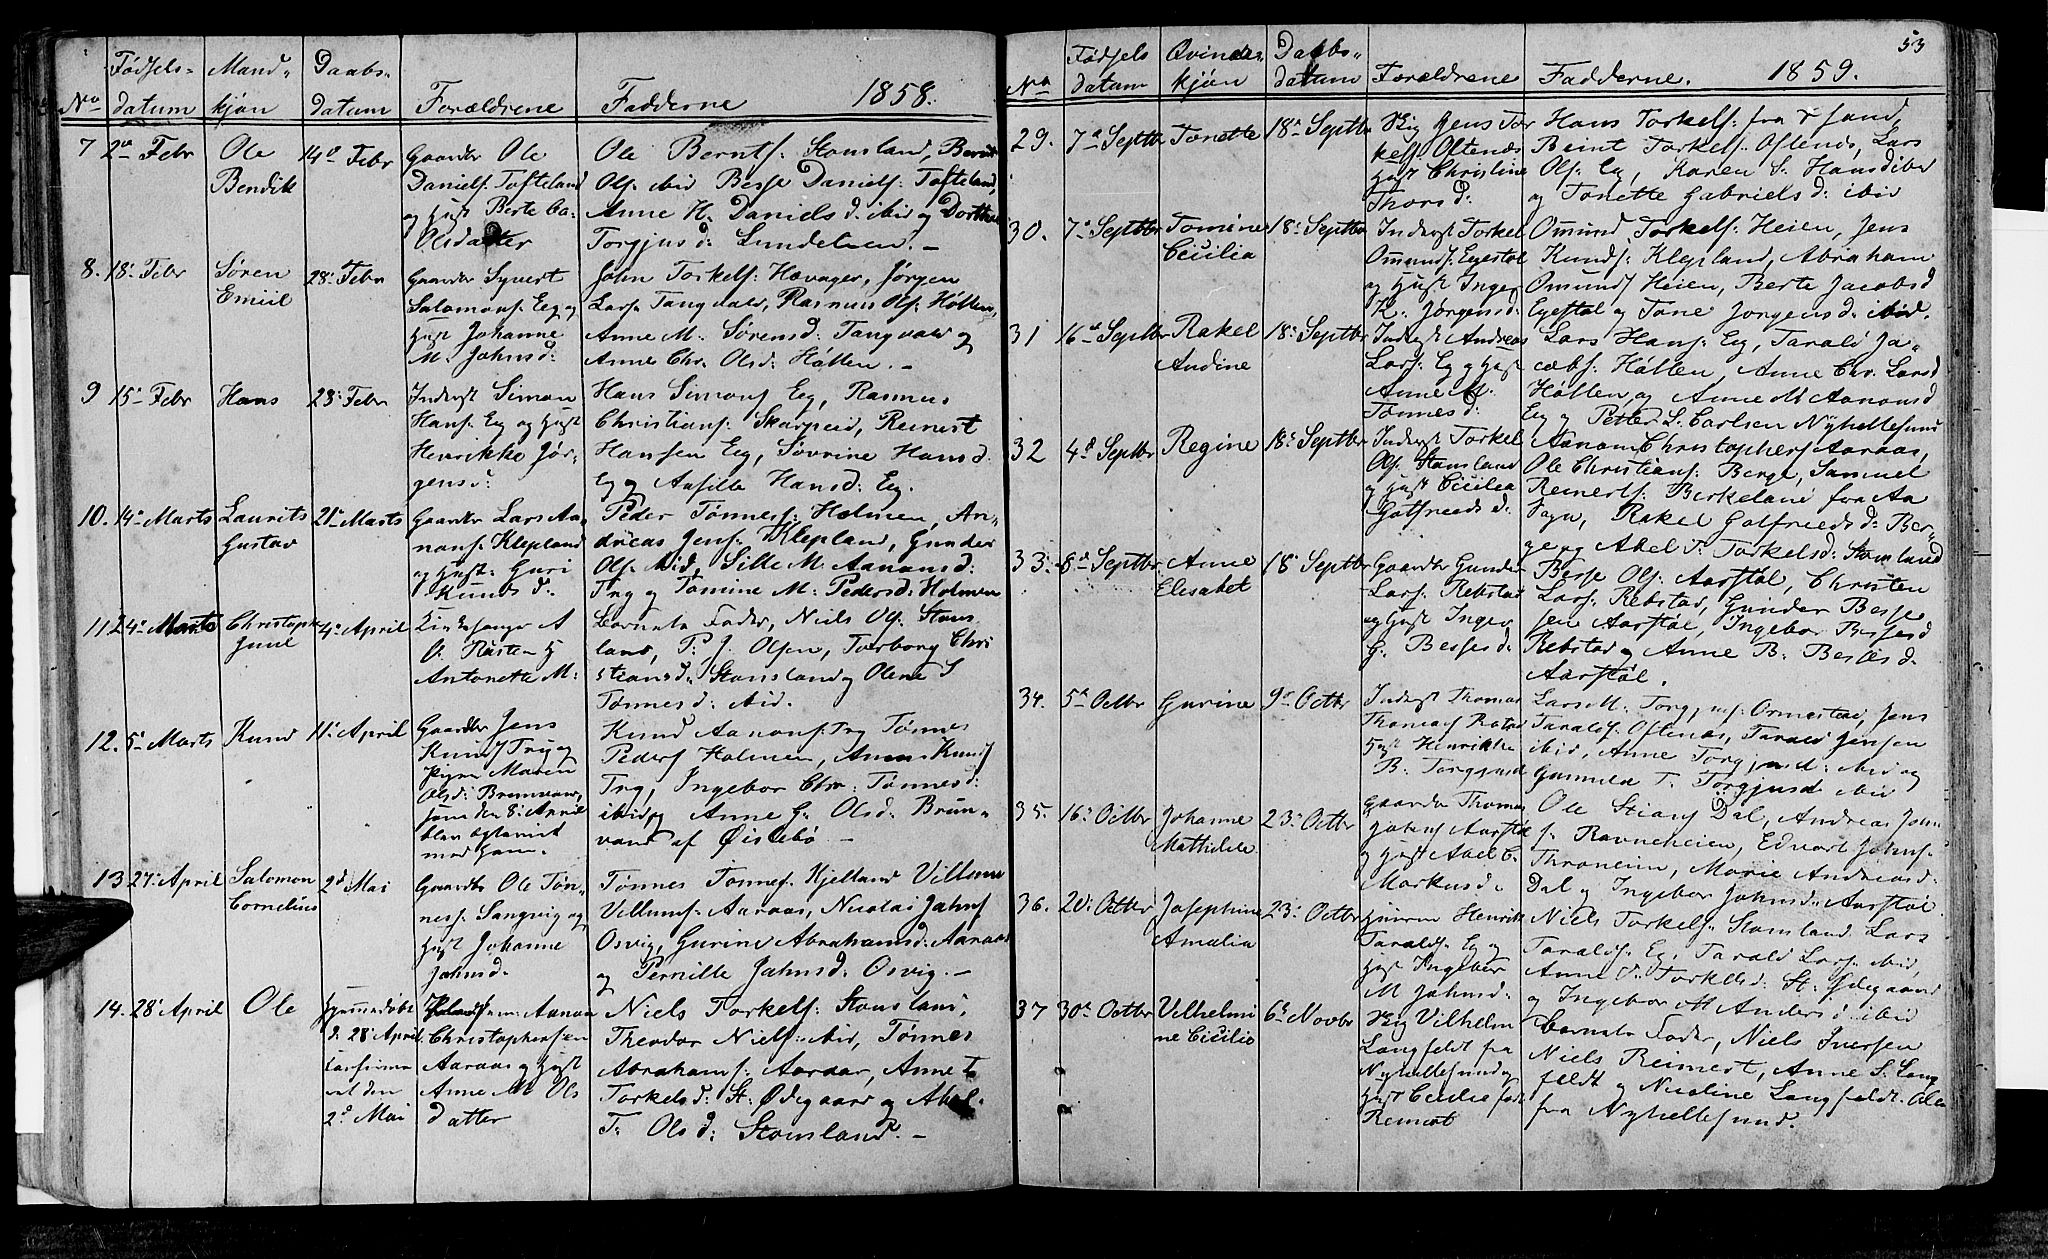 Fødsels-
Mand-
Daabs-
No
datum
kjøn
datum
Forældrene
Fadderne
1858.
7
2den Febr
Ole
Bendik
14de Febr
Gaardbr Ole
Daniels: Tofteland
og Hust Berte Ca-
Olsdatter
Ole Bernts: Stomsland, Bernt
Ols: ibid Besse Daniels: Tofteland,
Anne H. Daniels d. ibid og Dorthea
Torgjus d: Lundelven. -
8.
18: Febr
Søren
Emiil
28: Febr
Gaardbr Syvert
Salomons: Eeg og
Hust Johanne
M. Jahns d:
John Torkels: Hævager, Jørgen
Lars: Tangvald, Rasmus Ols: Hølten,
Anne M. Sørens d: Tangvald og
Anne Chr. Olsd: Hølten. -
9
15- Febr
Hans
28: Febr
Inderst Simon
Hans: Eg og Hust
Henrikke Jør-
gens d:
Hans Simons: Eg, Rasmus
Christians: Skarpeid, Reinert
Hansen Eg, Søvrine Hans d.
Eg og Aasille Hansd: Eg.
10.
14: Marts
Laurits
Gustav
21: Marts
Gaardbr Lars Aa-
nons: Klepland
og Hust: Guri
Knuds d.
Peder Tønnes: Holmen, An-
dreas Jens: Klepland, Gunder
Ols: ibid, Sille M. Aanons d:
Trg og Tomine M: Peders d: Holmen
11
24: Marts
Christoph
Juul
4: April
Kirkesanger A
O. Røsten og
Antonette M:
Barnets Fader, Niels Ols: Stoms
land, P. J. Olsen, Torborg Chri
stians d. Stomsland og Olene S
Tønnes d: ibid.
12.
5: Marts
Knud
11: April
Gaardbr Jens
Knuds Try og
Pigen Maren
Olsd: Brunvand,
som den 8: April
blev
med ham.
Knud Aanons: Trg Tønnes
Peders Holmen, Knuds
Trg, Ingebor Chr: Tønnes d:
ibid og Anne G. Olsd: Brun-
vand af Øislebø -
13
27: April
Salomon
Cornelius
2d Mai
Gaardbr Ole Tøn-
nes: Sangvig og
Hust Johanne
Jahns d.
Tønnes Tønnes: Kjelland Villum
Villums: Aaraas, Nicolai Jahns
Osvig, Gurine Abrahams d: Aaraas
og Pernille Jahns d: Osvig. -
14.
28: April
Ole
Hjemmedøbt
d. 28 April
confirme
ret den
2d Mai
Aanon
Christophersen
Aaraas og Hust
Anne M Ols
datter
Niels Torkels: Stomsland,
Theodor Niels: ibid, Tønnes
Abrahams: Aaraas, Anne T.
Torkels d: St: Ødegaard og Abel
T: Ols d: Stomsland. -
53
Fødsels
Qvinde-
Daabs-
No
datum
kjøn
datum
Forældrene
Fadderne.
1859.
29.
7de Septbr
Tonette
18: Septbr
Jens Tor
kels: Oftenes
Hust Christine
Thors d:
Hans Torkels: fra X sand,
Beint Torkels: Oftenes, Lars
Ols: Eg, Karen S. Hans d ibd
og Tonette Gabriels d: ibid
30.
7: Septbr
Tomine
Cicilia
18: Septbr
Inderst Torkel
Omunds: Egestøl
og Hust Inger
K. Jørgens d:
Omund Torkels: Heien, Jens
Knuds: Klepland, Abraham
Omunds Heien, Berte Jacobs d
Egestøl og Tone Jørgens d: ibid.
31
16de Septbr
Rakel
Andine
18: Septbr
Inderst Andreas
Lars: Eg og Hust
Anne M.
Tønnes d:
Lars Hans: Eg, Tarald Ja-
cobs: Hølten, Anne Chr. Lars d
Hølten og Anne M Aanons d
Eg og Petter S. Carlsen Nyhellesund
32
4de Septbr
Regine
18: Septbr
Inderst Torkel
Ols: Stomsland
og Hust Cicilia
Gotfreeds d.
Aanon Christophers Aaraas,
Ole Christians: Berge, Samuel
Reinerts: Birkeland fra Aa
Sogn, Rakel Gotfreeds d: Ber-
ge og Abel T. Torkels d: Stomsland
33:
8d Septbr
Anne
Elisabet
18 Septbr
Gaardbr Gunder
Lars: Rebstad
og Hust Inger
G. Besses d:
Besse Ols: Aarstøl, Christen
Lars: Rebstad, Gunder Besse
sen Aarstøl, Ingebor Besses d
Rebstad og Anne B. Besses d.
Aarstøl.
34.
5te Octbr
Gurine
9de Octbr
Inderst Thomas
Thomas: Robstad
Hust Henrikke
B. Torgjus d
Lars M. Torgjus: Ormestad, Jens
Taralds: Oftenes, Tarald Jensen
ibid, Anne Torgjus d: ibid og
Gunnild T. Torgjus d ibid
35.
16: Octbr
Johanne
Mathilde
23: Octbr
Gaardbr Thomas
Jahns: Aarstøl
og Hust Abel C.
Markus d.
Ole Stians: Dal, Andreas John
s: Ravneheien, Eduart Jahns:
Throneien, Marie Andreas d:
Dal og Ingebor Jahns d: Aarstøl.
36.
20: Octbr
Josephine
Amalia
23: Octbr
Henrik
Taralds: Eg og
Hust Ingebor
M Jahns d:
Niels Torkels: Stomsland. Lars
Taralds: Eg, Tarald Lars: ibid,
Anne T. Torkels d: St: Ødegaard
og Ingebor M Anders d: ibid
37
30te Octbr
Vilhelmi
ne Cicilie
6te Novbr
Vilhelm
Langfeldt fra
Nyhellesund og
Hust Cecilia født
Reinert
Barnets Fader, Niels Iversen
Niels Reinert, Anne S. Lang
feldt og Nicoline Langfeldt. Alle
fra Nyhellesund.